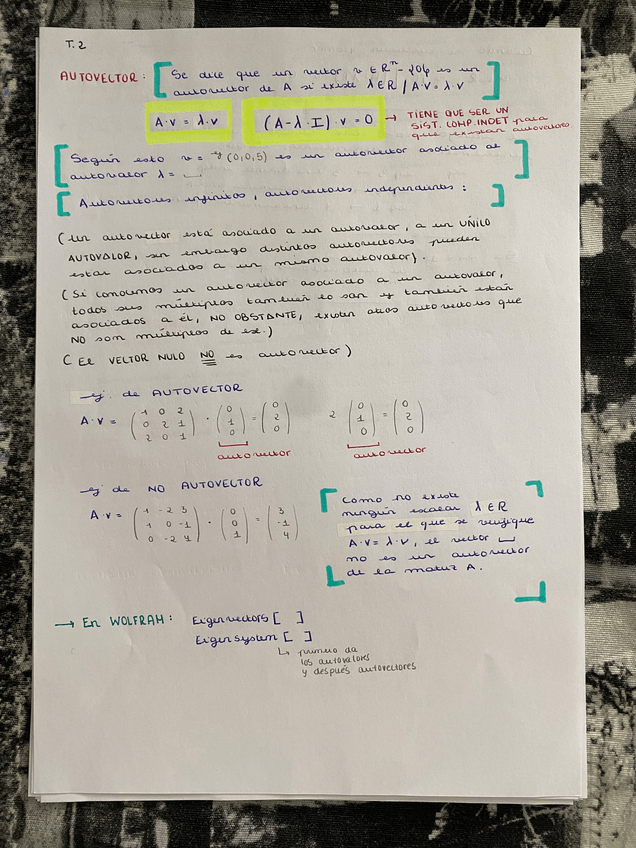 T.2
AUTOVECTOR: [ Se dice que un vector v ∈ Rⁿ - {0} es un
autovector de A si existe λ ∈ R / A·v = λ·v ]
A·v = λ·v
(A - λ·I)·v = 0
→ TIENE QUE SER UN
SIST. COMP. INDET para
que existan autovalores
[ Según esto v = (0,0,5) es un autovector asociado al
autovalor λ = ]
[ Autovectores infinitos, autovectores independientes: ]
(Un autovector está asociado a un autovalor, a un ÚNICO
AUTOVALOR, sin embargo distintos autovectores pueden
estar asociados a un mismo autovalor).
(Si conocemos un autovector asociado a un autovalor,
todos sus múltiplos también lo son y también están
asociados a él, NO OBSTANTE, existen otros autovectores que
NO son múltiplos de ese.)
(El VECTOR NULO NO es autovector)
ej. de AUTOVECTOR
1 0 2 0 0 0 0
A·v = ( 0 2 1 ) · ( 1 ) = ( 2 ) 2 ( 1 ) = ( 2 )
2 0 1 0 0 0 0
autovector autovector
ej de NO AUTOVECTOR
1 -2 3 0 3
A·v = ( 1 0 -1 ) · ( 0 ) = ( -1 )
0 -2 4 1 4
[ Como no existe
ningún escalar λ ∈ R
para el que se verifique
A·v = λ·v, el vector
no es un autovector
de la matriz A. ]
→ En WOLFRAM: Eigenvectors [ ]
Eigensystem [ ]
↳ primero da
los autovalores
y después autovectores